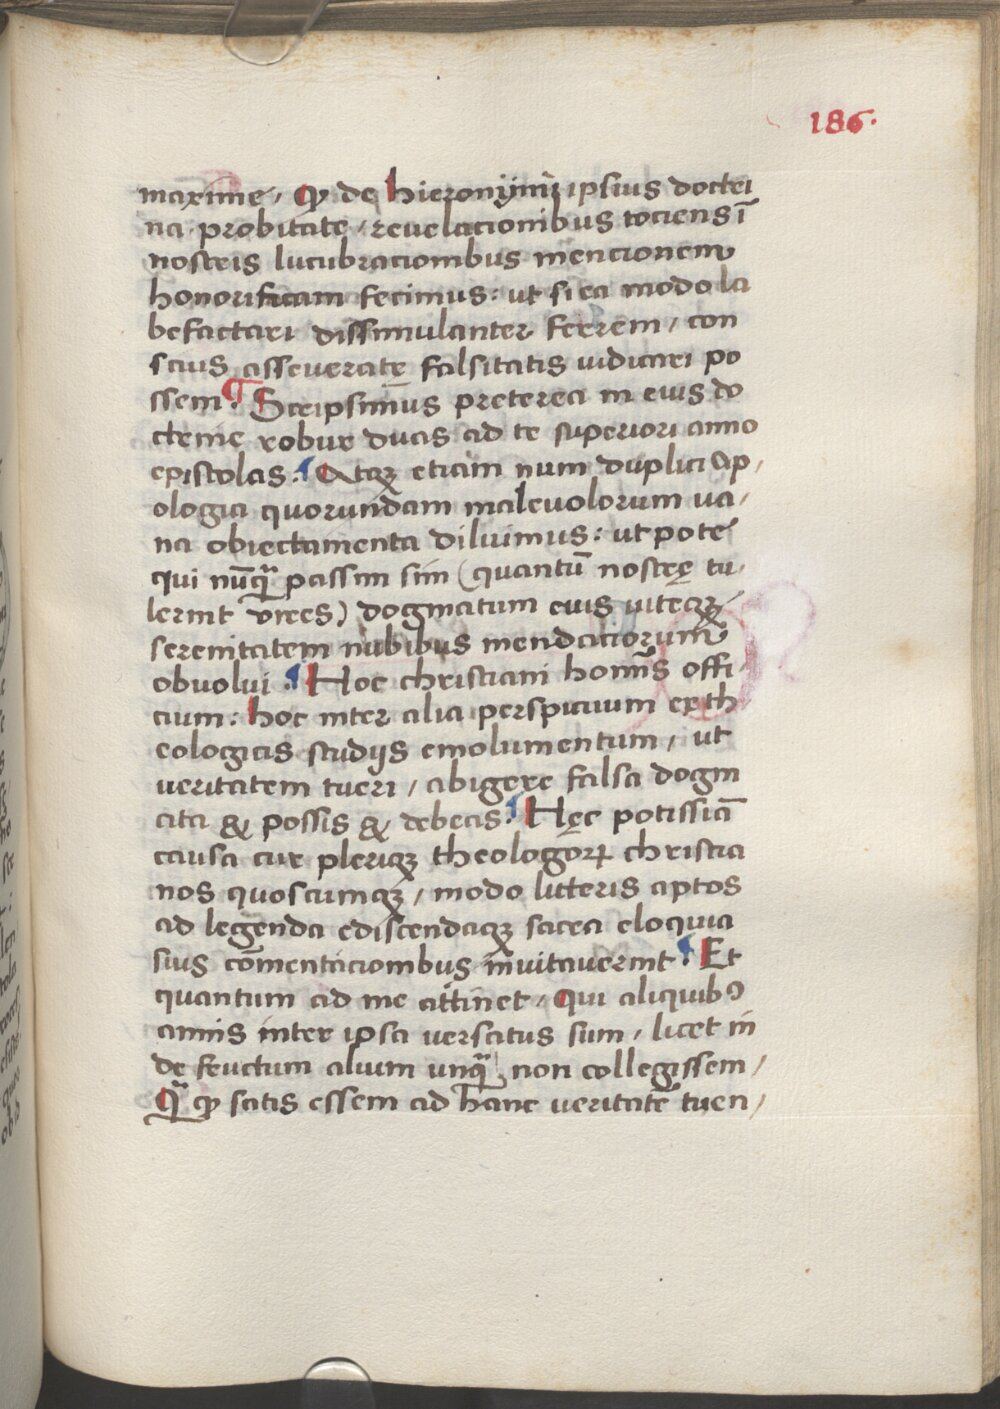 186.
maxime, Qꝫ de hieronymi ipsius doctri
na probitate, reuelacionibus tociens ī
nostris lucubracionibus mencionem
honorificam fecimus: ut si ea modo la
befactari dissimulanter ferrem, con
scius asseueratę falsitatis uidicari po
ssem. ¶ Scripsimus preterea in eius do
ctrine robur duas ad te superiori anno
epistolas. ¶ Atqꝫ etiam num duplici Ap,
ologia quorundam maleuolorum ua,
na obiectamenta diluimus: ut pote
qui nūqᷓ passim sim (quantū nostrę tu,
lerint vires) dogmatum eius uitęqꝫ
serenitatem nubibus mendaciorum
obuolui. ¶ Hoc christiani homīs offi,
cium: hoc inter alia perspicuum ex th
eologicis studijs emolumentum, ut
veritatem tueri, abigere falsa dogm
ata & possis & debeas. ¶ Hęc potissiā
causa cur pleriqꝫ theologoꝝ christia
nos quoscumqꝫ, modo luteris aptos
ad legenda ediscendaqꝫ sacra eloquia
suis cōmentacionibus inuitauerint. ¶ Et
quantum ad me attinet, Qui aliquibꝰ
annis inter ipsa uersatus sum, licet in
de fructum alium unqᷓ non collegissem,
Qᷓ qꝫ satis essem ad hanc veritatē tuen,